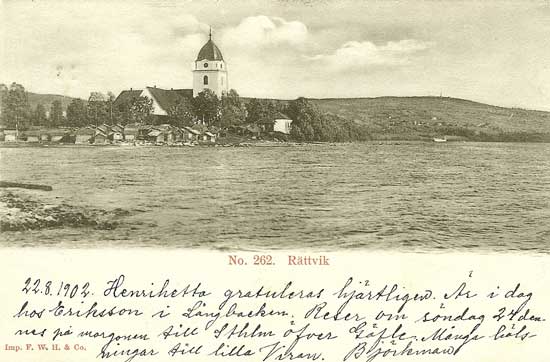 No. 262. Rättvik
22.8.1902. Henrihetta gratuleras hjärtligen. Är i dag
hos Eriksson i Långbacken. Reser om söndag 24 den-
nes på morgonen till Sthlm öfver Gefle. Många häls-
ningar till lilla Viran. Björkman
Imp. F. W. H. & Co.